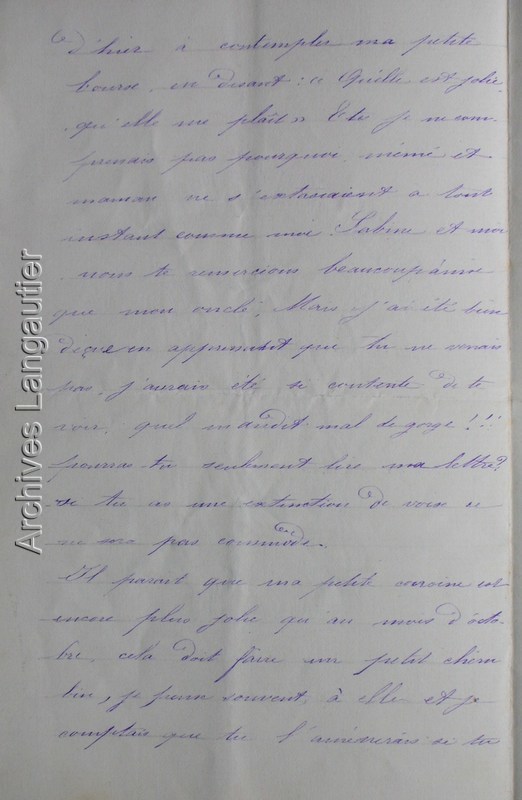 d'hier à contempler ma petite
bourse en disant : « Qu'elle est jolie,
qu'elle me plaît » Et je ne com-
prenais pas pourquoi mémé et
maman ne s'extasiaient à tout
instant comme moi. Sabine et moi
nous te remercions beaucoup ainsi
que mon oncle, Mais j'ai été bien
deçue en apprenant que tu ne venais
pas j'aurais été si contente de te
voir, quel maudit mal de gorge !!!
pourras-tu seulement lire ma lettre?
si tu as une extinction de voix ce
ne sera pas commode.
Il parait que ma petite cousine est
encore plus jolie qu'au mois d'octo-
bre, cela doit faire un petit chéru
bin, je pense souvent à elle et je
comptais que tu l'amènerais si tu
Archives Langautier